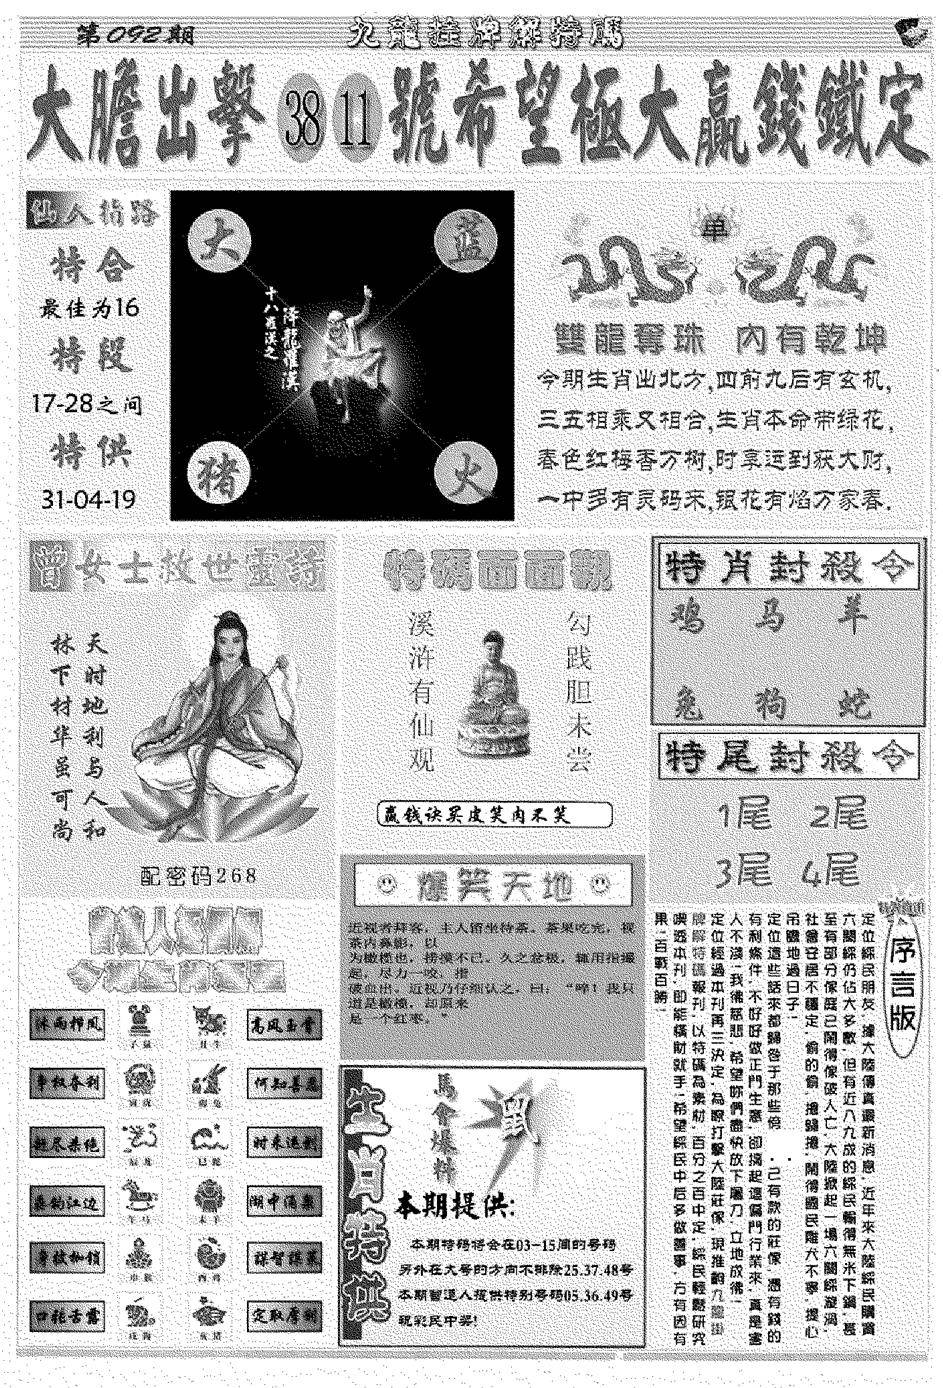 第092期
九龍挂牌解特碼
大膽出擊 38 11 號希望極大贏錢鐵定
仙人指路
特合
最佳为16
特段
17-28之间
特供
31-04-19
大
蓝
十八羅漢之
降龍羅漢
猪
火
单
雙龍奪珠 內有乾坤
今期生肖出北方,四前九后有玄机,
三五相乘又相合,生肖本命带绿花,
春色红梅香万树,时来运到获大财,
一中多有灵码来,银花有焰万家春.
曾女士救世靈詩
天时地利与人和
林下材华虽可尚
配密码268
特碼面面觀
勾践胆未尝
溪浒有仙观
赢钱诀买皮笑肉不笑
特肖封殺令
鸡 马 羊
兔 狗 蛇
特尾封殺令
1尾 2尾
3尾 4尾
爆笑天地
近视者拜客，主人留坐待茶。茶果吃完，视
茶内鼻影，以
为橄榄也，捞摸不已。久之忿极，辄用指撮
起，尽力一咬，指
破血出。近视乃仔细认之，曰：“啐！我只
道是橄榄，却原来
是一个红枣。”
沐雨栉风
子鼠
丑牛
高风亮节
争权夺利
寅虎
卯兔
何知善恶
赶尽杀绝
辰龙
巳蛇
时来运到
垂钩江边
午马
未羊
湖中涌巢
申猴
酉鸡
口耗舌露
戌狗
亥猪
生肖特供
馬會爆料
鼠
本期提供:
本期特码将会在03-15间的号码
另外在大号的方向不排除25.37.48号
本期曾道人提供特别号码05.36.49号
祝彩民中奖!
序言版
定位綵民朋友,據大陸傳真最新消息,近年來大陸綵民購買
六閤綵仍佔大多數,但有近八九成的綵民輸得無米下鍋,甚
至有部分傢庭已鬧得傢破人亡,大陸掀起一場六閤綵漩渦,
社會安居不穩定,偷的偷,搶歸搶,鬧得國民雞犬不寧,提心
吊膽地過日子!
定位這些話來都歸咎于那些傍,己有款的莊傢,憑有錢的
有利條件,不好好做正門生意,卻搞起這偏門行業來,真是害
人不淺!我彿慈悲,希望妳們盡快放下屠刀,立地成彿!
定位經過本刊再三決定,為瞭打擊大陸莊傢,現推齣九龍掛
牌解特碼報刊,以特碼為素材,百分之百中定,綵民輕鬆研究
噢透本刊,即能橫財就手!希望綵民中后多做善事,方有因有
果,百戰百勝!